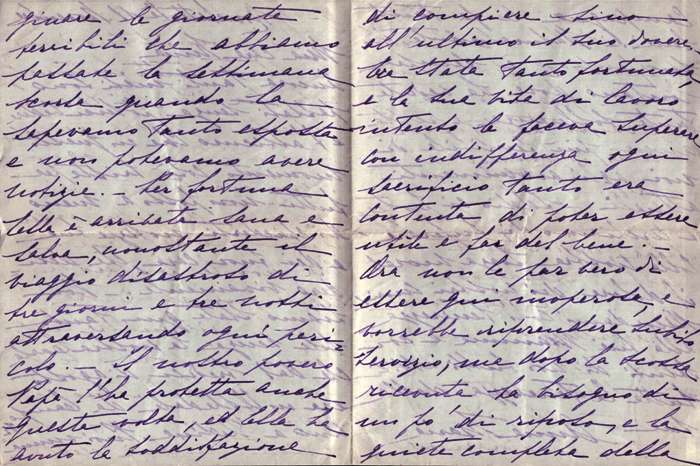 ginare le giornate
terribili che abbiamo
passate la settimana
scorsa quando la
sapevamo tanto esposta
e non potevamo avere
notizie. - Per fortuna
Ella è arrivata sana e
salva, nonostante il
viaggio disastroso di
tre giorni e tre notti
attraversando ogni peri-
colo. - Il nostro povero
Papà l'ha protetta anche
questa volta, ed Ella ha
avuto la soddisfazione
di compiere sino
all'ultimo il suo dovere
Era stata tanto fortunata,
e la sua vita di lavoro
intenso le faceva superare
con indifferenza ogni
sacrificio tanto era
contenta di poter essere
utile e far del bene. -
Ora non le par vero di
essere qui inoperosa, e
vorrebbe riprendere subito
servizio, ma dopo la scossa
ricevuta ha bisogno di
un po' di riposo, e la
quiete completa della